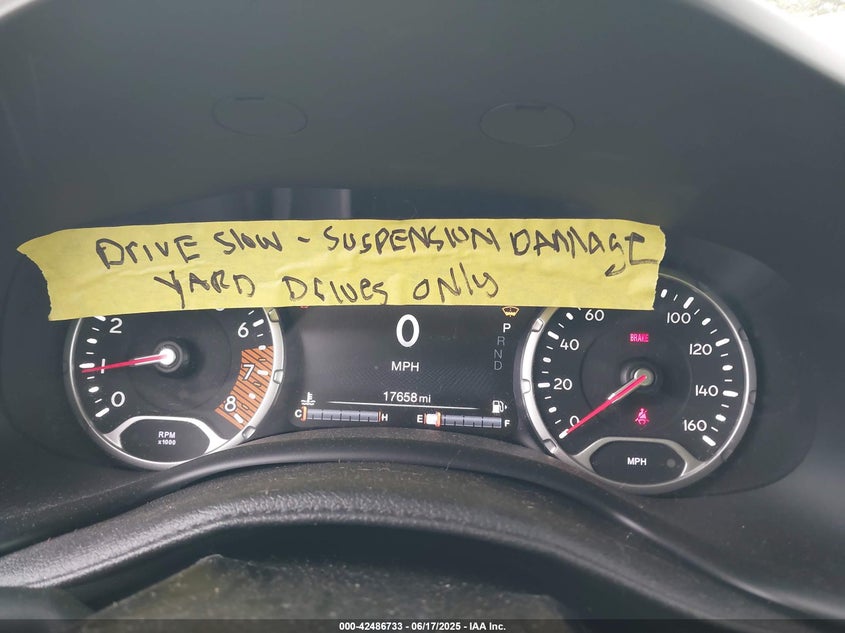 DRIVE SLOW - SUSPENSION DAMAGE
YARD DRIVES ONLY
0
MPH
17658 mi
C H E F
P
R
N
D
0 1 2 6 7 8
RPM
x1000
0 20 40 60 100 120 140 160
BRAKE
MPH
000-42486733 - 06/17/2025 - IAA Inc.